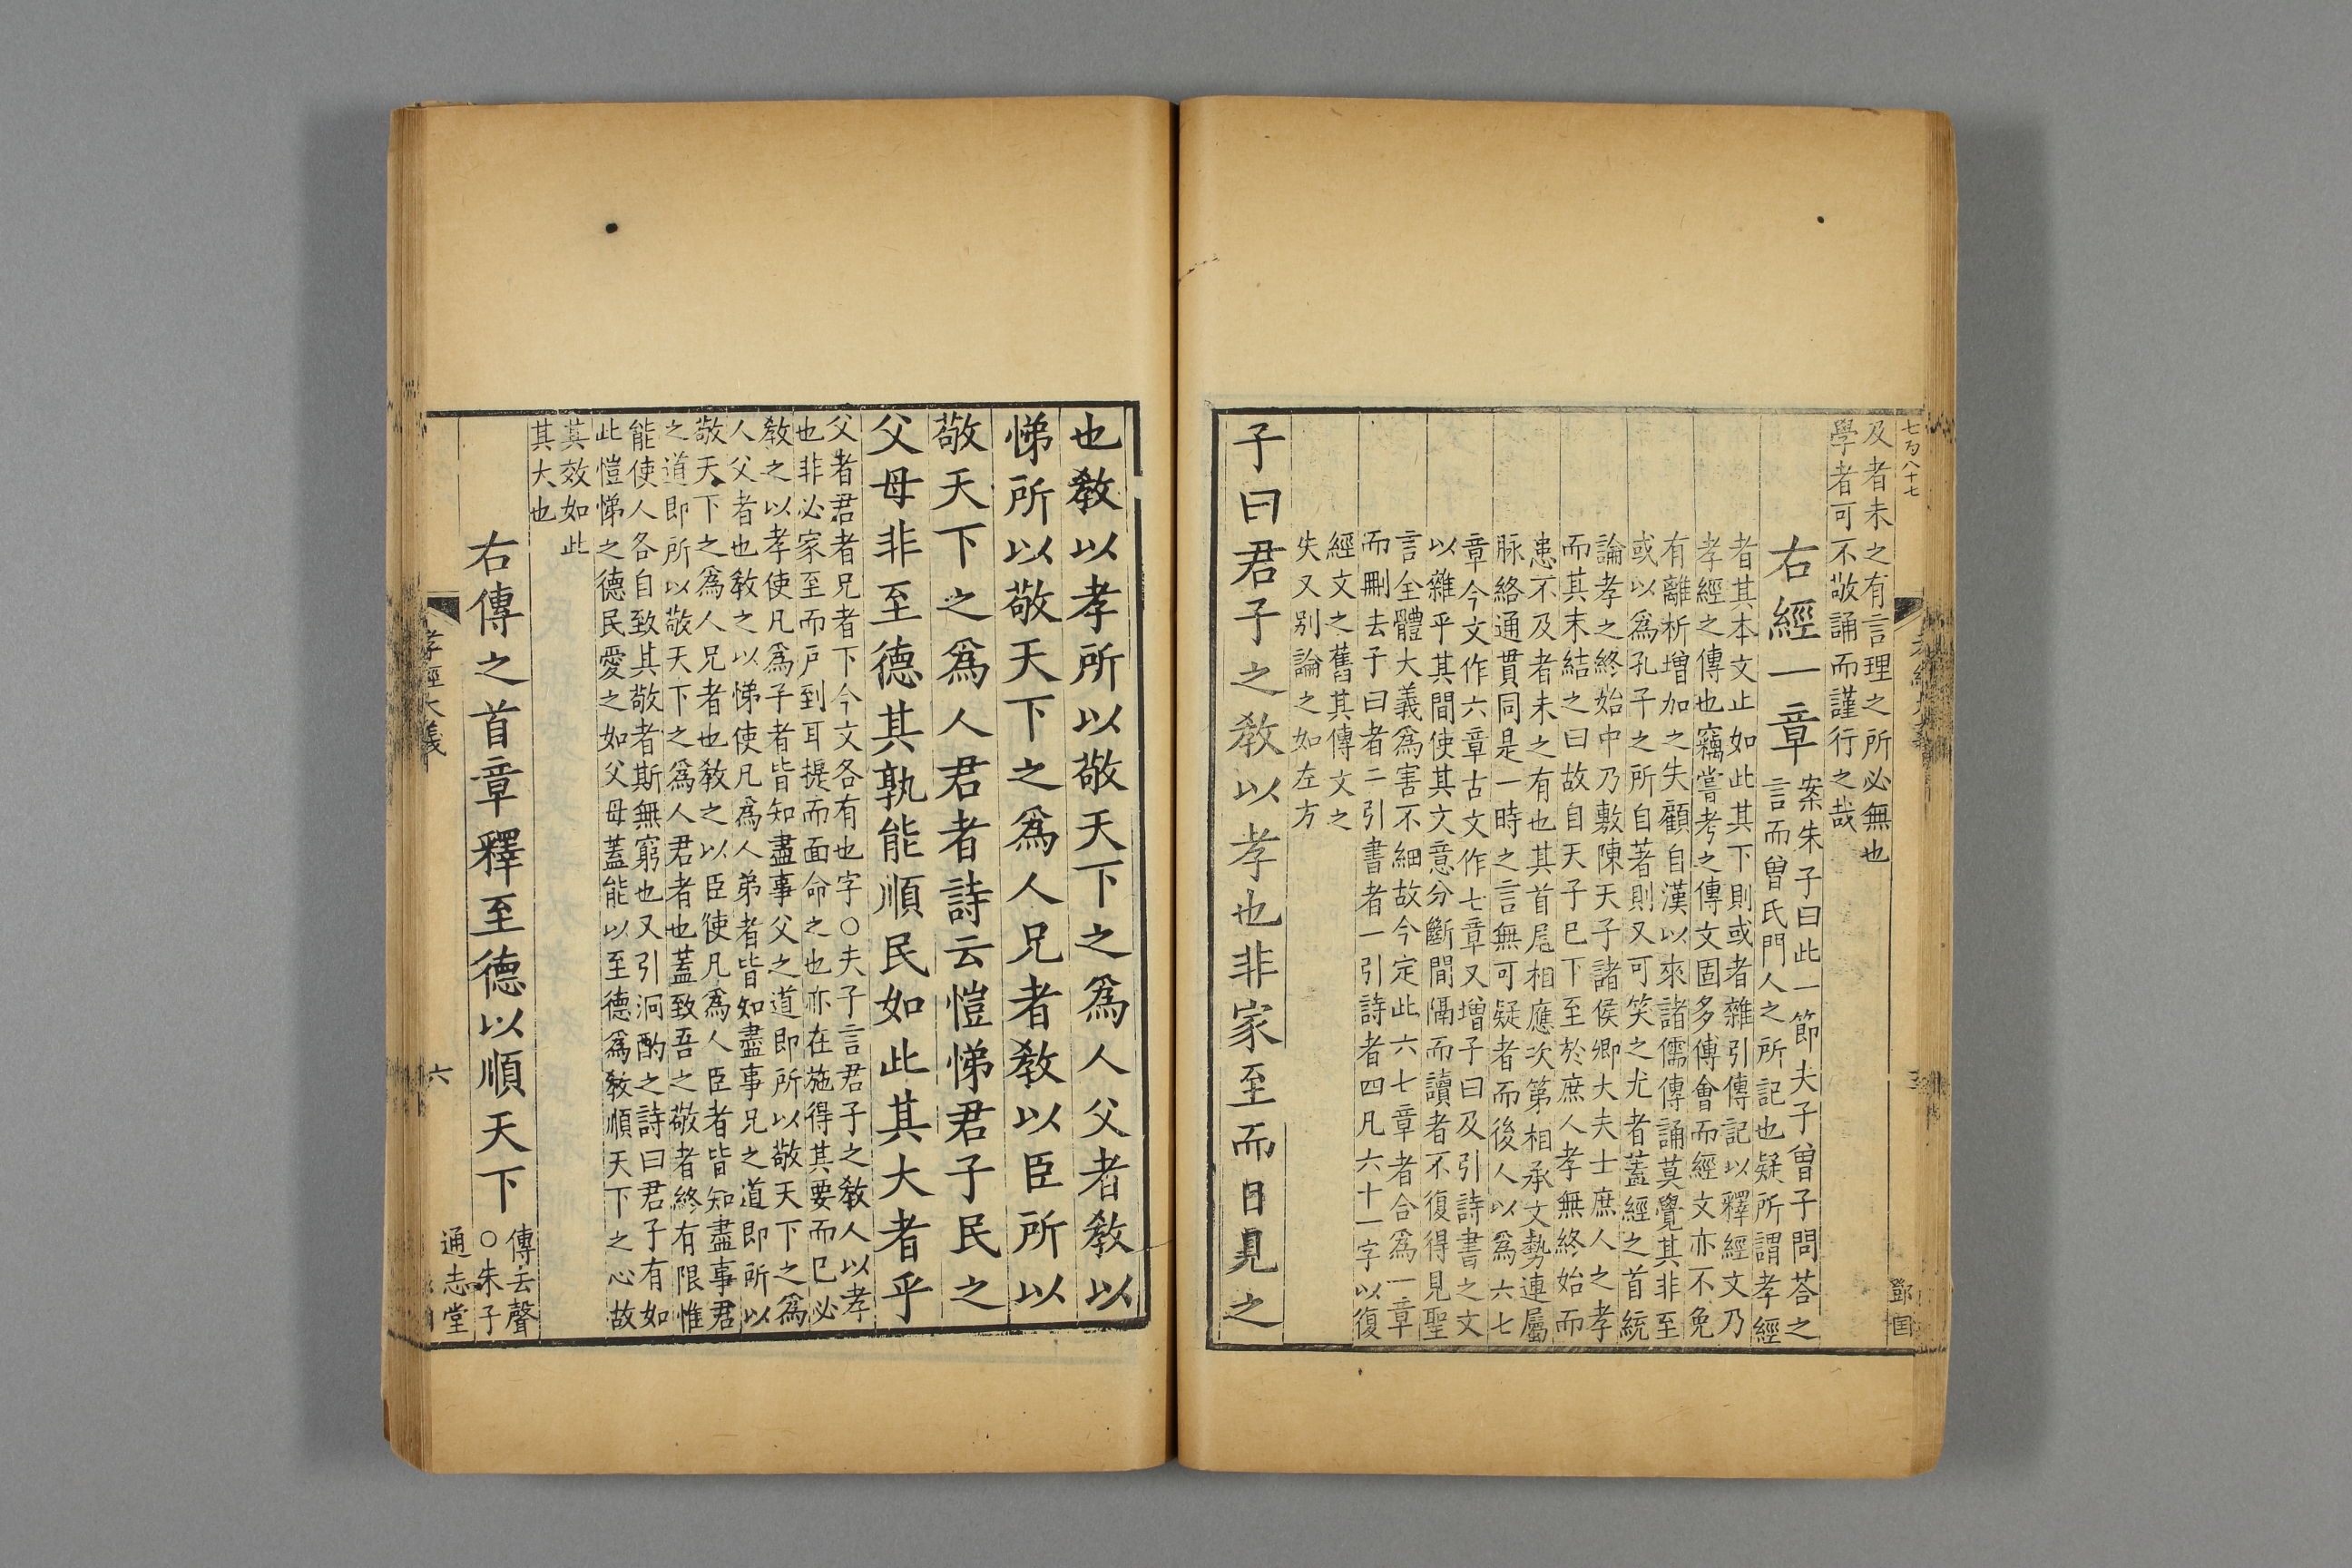 及者未之有言理之所必無也
學者可不敬誦而謹行之哉
右經一章
案朱子曰此一節夫子曾子問荅之
言而曾氏門人之所記也疑所謂孝經
者其本文止如此其下則或者雜引傳記以釋經文乃
孝經之傳也竊嘗考之傳文固多傅會而經文亦不免
有離析增加之失顧自漢以來諸儒傳誦莫覺其非至
或以為孔子之所自著則又可笑之尤者蓋經之首統
論孝之終始中乃敷陳天子諸侯卿大夫士庶人之孝
而其末結之曰故自天子已下至於庶人孝無終始而
患不及者未之有也其首尾相應次第相承文勢連屬
脉絡通貫同是一時之言無可疑者而後人以為六七
章今文作六章古文作七章又增子曰及引詩書之文
以雜乎其間使其文意分斷間隔而讀者不復得見聖
言全體大義為害不細故今定此六七章者合為一章
而刪去子曰者二引書者一引詩者四凡六十一字以復
經文之舊其傳文之
失又别論之如左方
子曰君子之敎以孝也非家至而日見之
鄧国
也敎以孝所以敬天下之為人父者敎以
悌所以敬天下之為人兄者敎以臣所以
敬天下之為人君者詩云愷悌君子民之
父母非至德其孰能順民如此其大者乎
父者君者兄者下今文各有也字○夫子言君子之敎人以孝
也非必家至而戶到耳提而面命之也亦在施得其要而已必
敎之以孝使凡為子者皆知盡事父之道即所以敬天下之為
人父者也敎之以悌使凡為人弟者皆知盡事兄之道即所以
敬天下之為人兄者也敎之以臣使凡為人臣者皆知盡事君
之道即所以敬天下之為人君者也蓋致吾之敬者終有限惟
能使人各自致其敬者斯無窮也又引泂酌之詩曰君子有如
此愷悌之德民愛之如父母蓋能以至德為敎順天下之心故
其效如此
其大也
右傳之首章釋至德以順天下
傳云聲
○朱子
孝經大義
六
通志堂